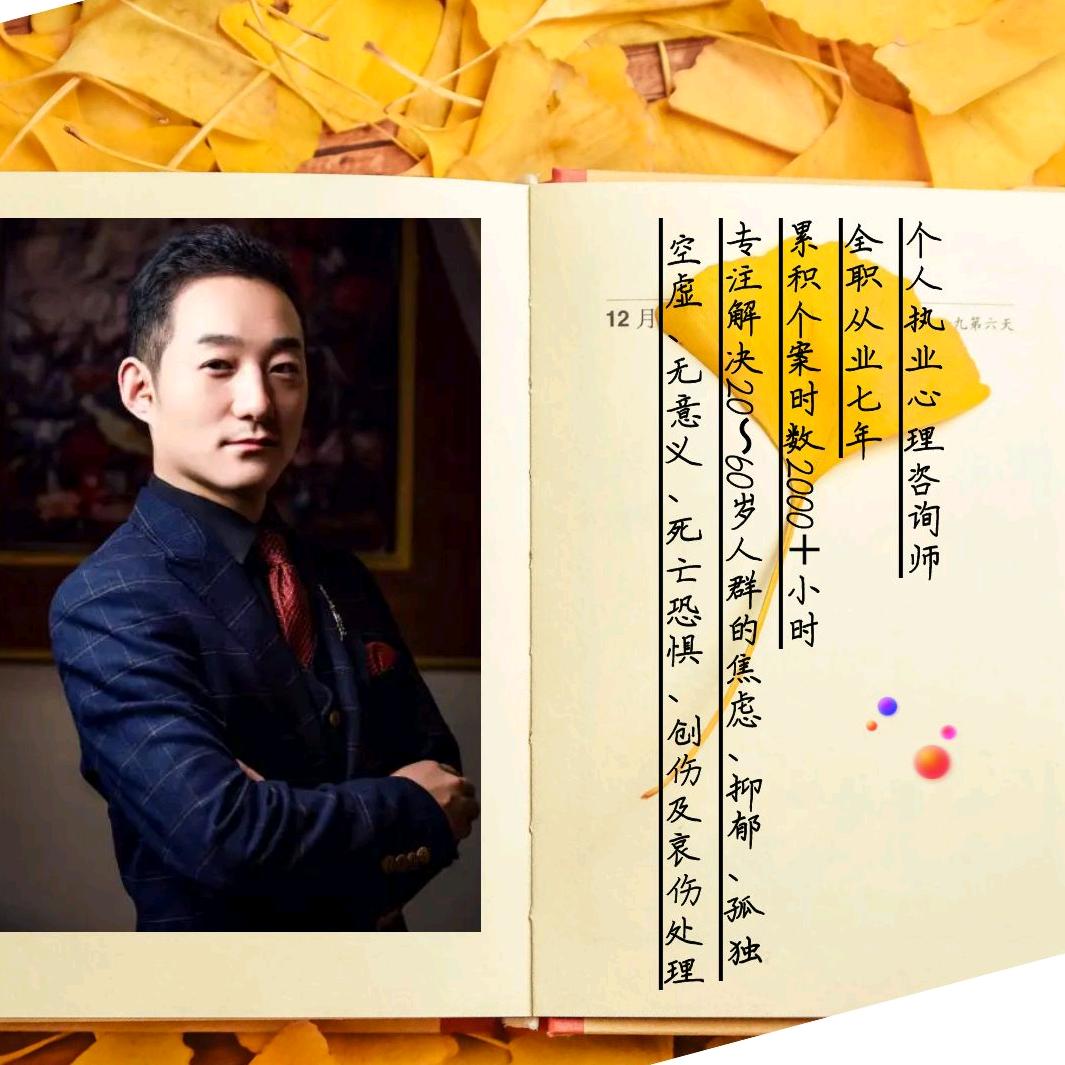 个人执业心理咨询师
全职从业七年
累积个案时数2000+小时
专注解决20~60岁人群的焦虑、抑郁、孤独
空虚、无意义、死亡恐惧、创伤及哀伤处理
12月
九第六天